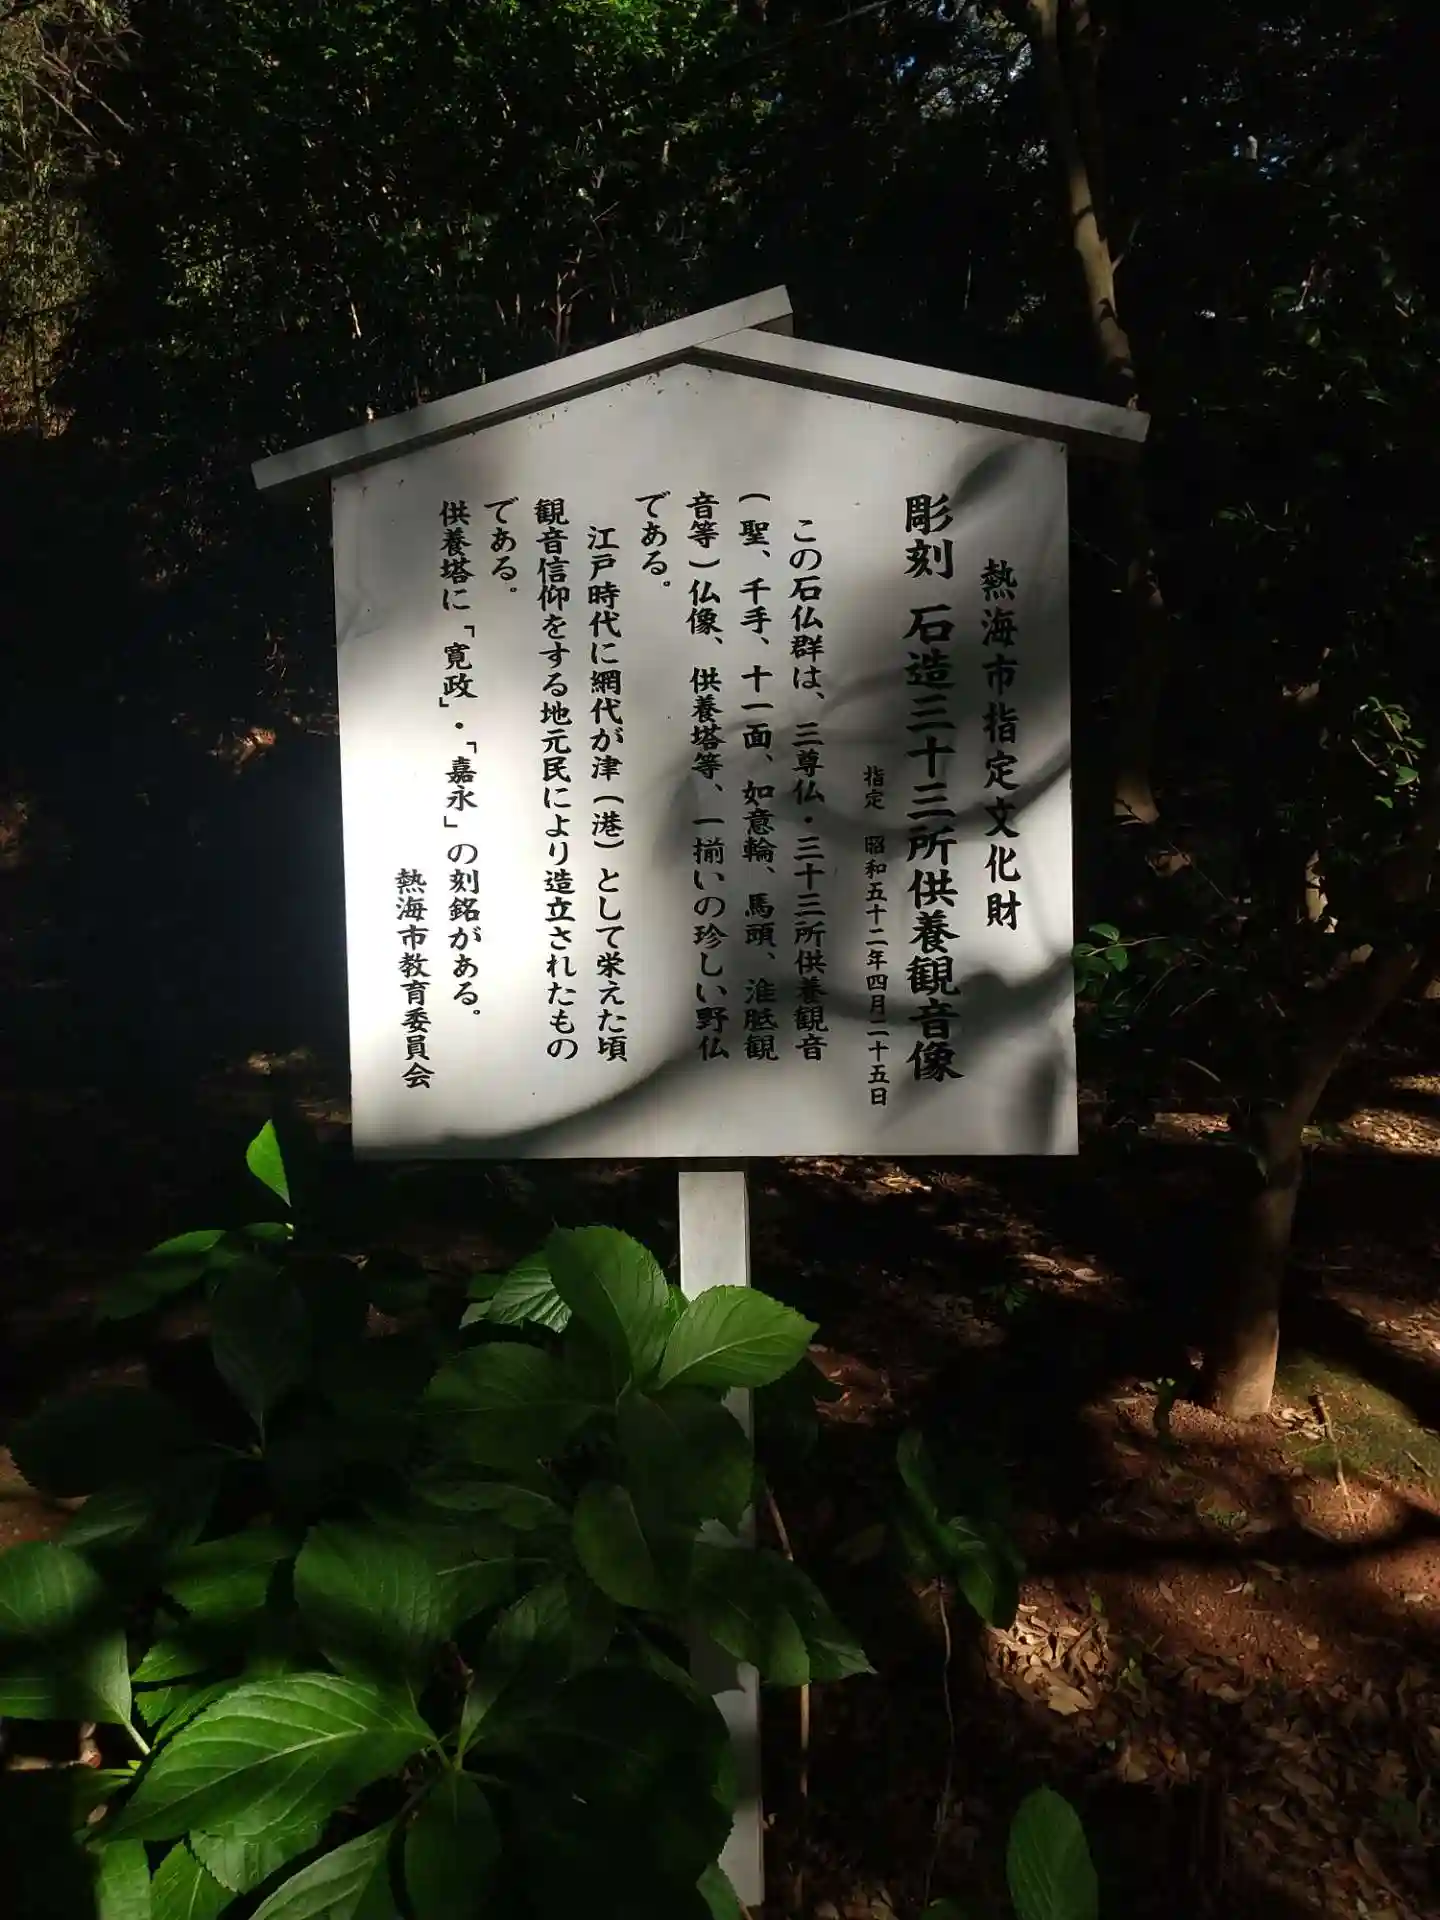 熱海市指定文化財
彫刻 石造三十三所供養観音像
指定 昭和五十二年四月二十五日
この石仏群は、三尊仏・三十三所供養観音
(聖、千手、十一面、如意輪、馬頭、准胝観
音等)仏像、供養塔等、一揃いの珍しい野仏
である。
江戸時代に網代が津(港)として栄えた頃
観音信仰をする地元民により造立されたもの
である。
供養塔に「寛政」・「嘉永」の刻銘がある。
熱海市教育委員会